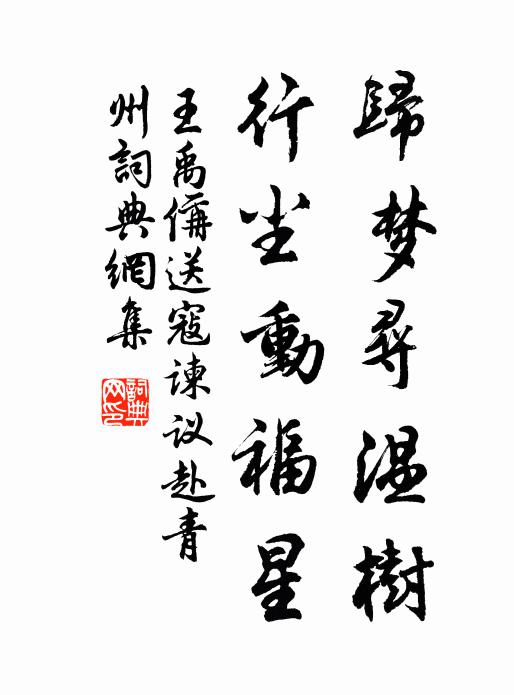 歸梦尋温樹
行尘動福星
王禹偁送寇谏议赴青
州詞典網集
詞典网印